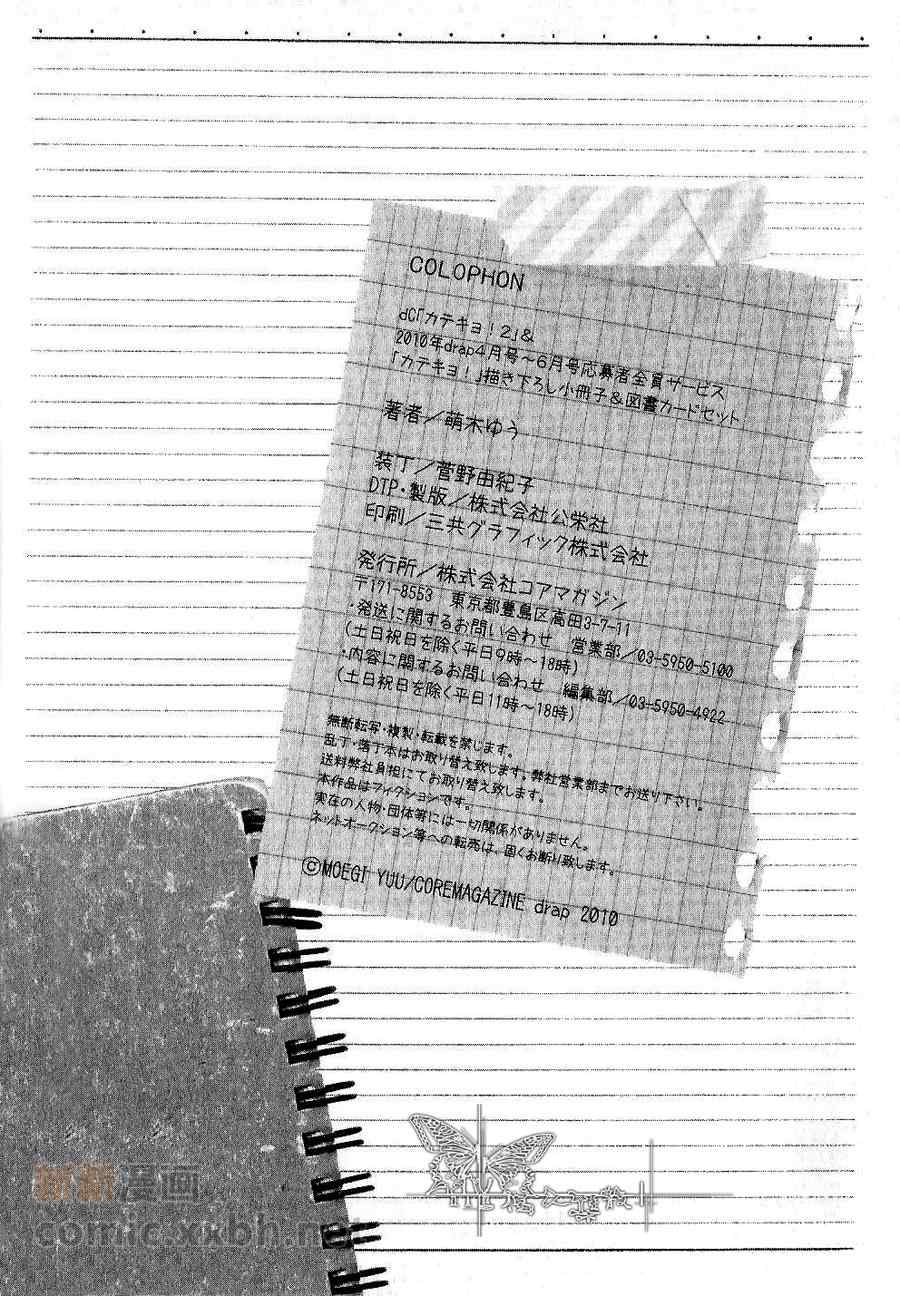 COLOPHON
dC「カテキョ！2」&
2010年drap4月号～6月号応募者全員サービス
「カテキョ！」描き下ろし小冊子＆図書カードセット
著者／萌木ゆう
装丁／菅野由紀子
DTP・製版／株式会社公栄社
印刷／三共グラフィック株式会社
発行所／株式会社コアマガジン
〒171-8553　東京都豊島区高田3-7-11
・発送に関するお問い合わせ　営業部／03-5950-5100
（土日祝日を除く平日9時～18時）
・内容に関するお問い合わせ　編集部／03-5950-4922
（土日祝日を除く平日11時～18時）
無断転写・複製・転載を禁じます。
乱丁・落丁本はお取り替え致します。弊社営業部までお送り下さい。
送料弊社負担にてお取り替え致します。
本作品はフィクションです。
実在の人物・団体等には一切関係がありません。
ネットオークション等への転売は、固くお断り致します。
©MOEGI YUU/COREMAGAZINE drap 2010
新新漫画
comic.xxbh.net